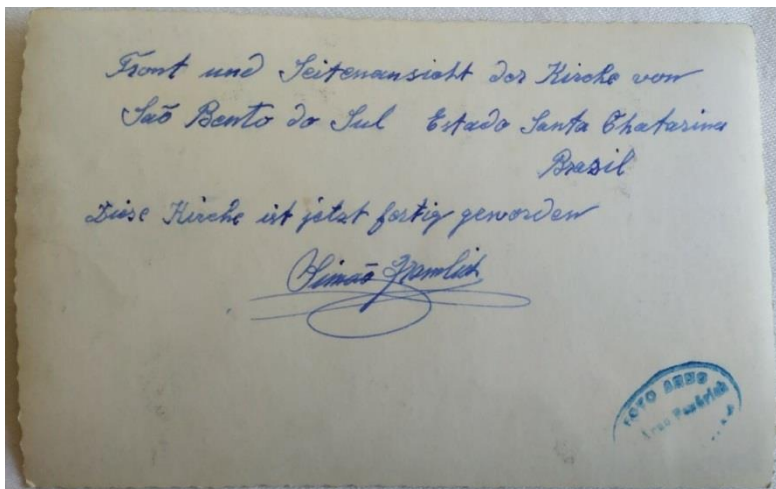 Front und Seitenansicht der Kirche von
Saõ Bento do Sul Estado Santa Chatarina
Brazil
Diese Kirche ist jetzt fertig geworden
Simão Gramlich
FOTO